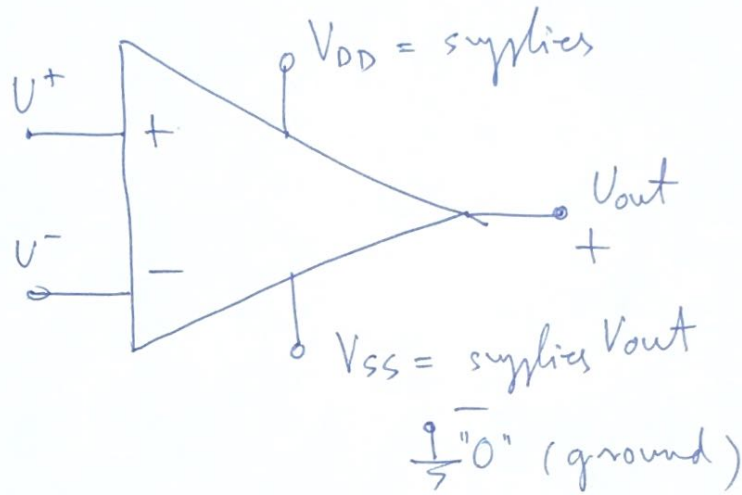 V_DD = supplies
U⁺
+
Uout
+
U⁻
−
V_SS = supplies
Vout
−
"0" (ground)